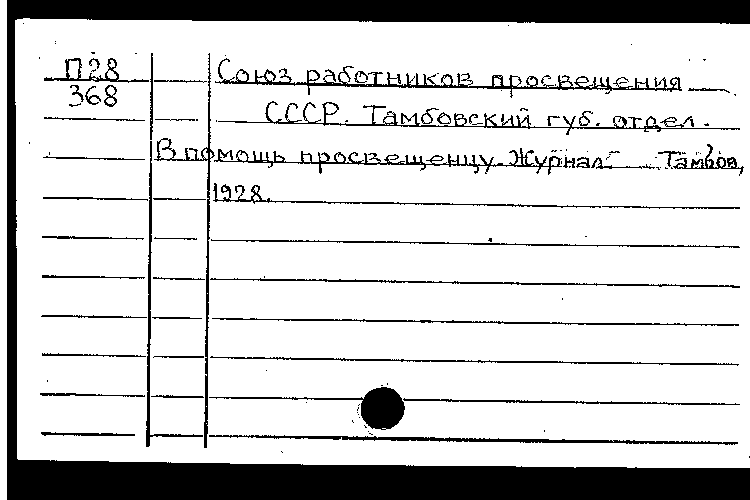 П28
368
Союз работников просвещения
СССР. Тамбовский губ. отдел.
В помощь просвещенцу. Журнал. Тамбов,
1928.